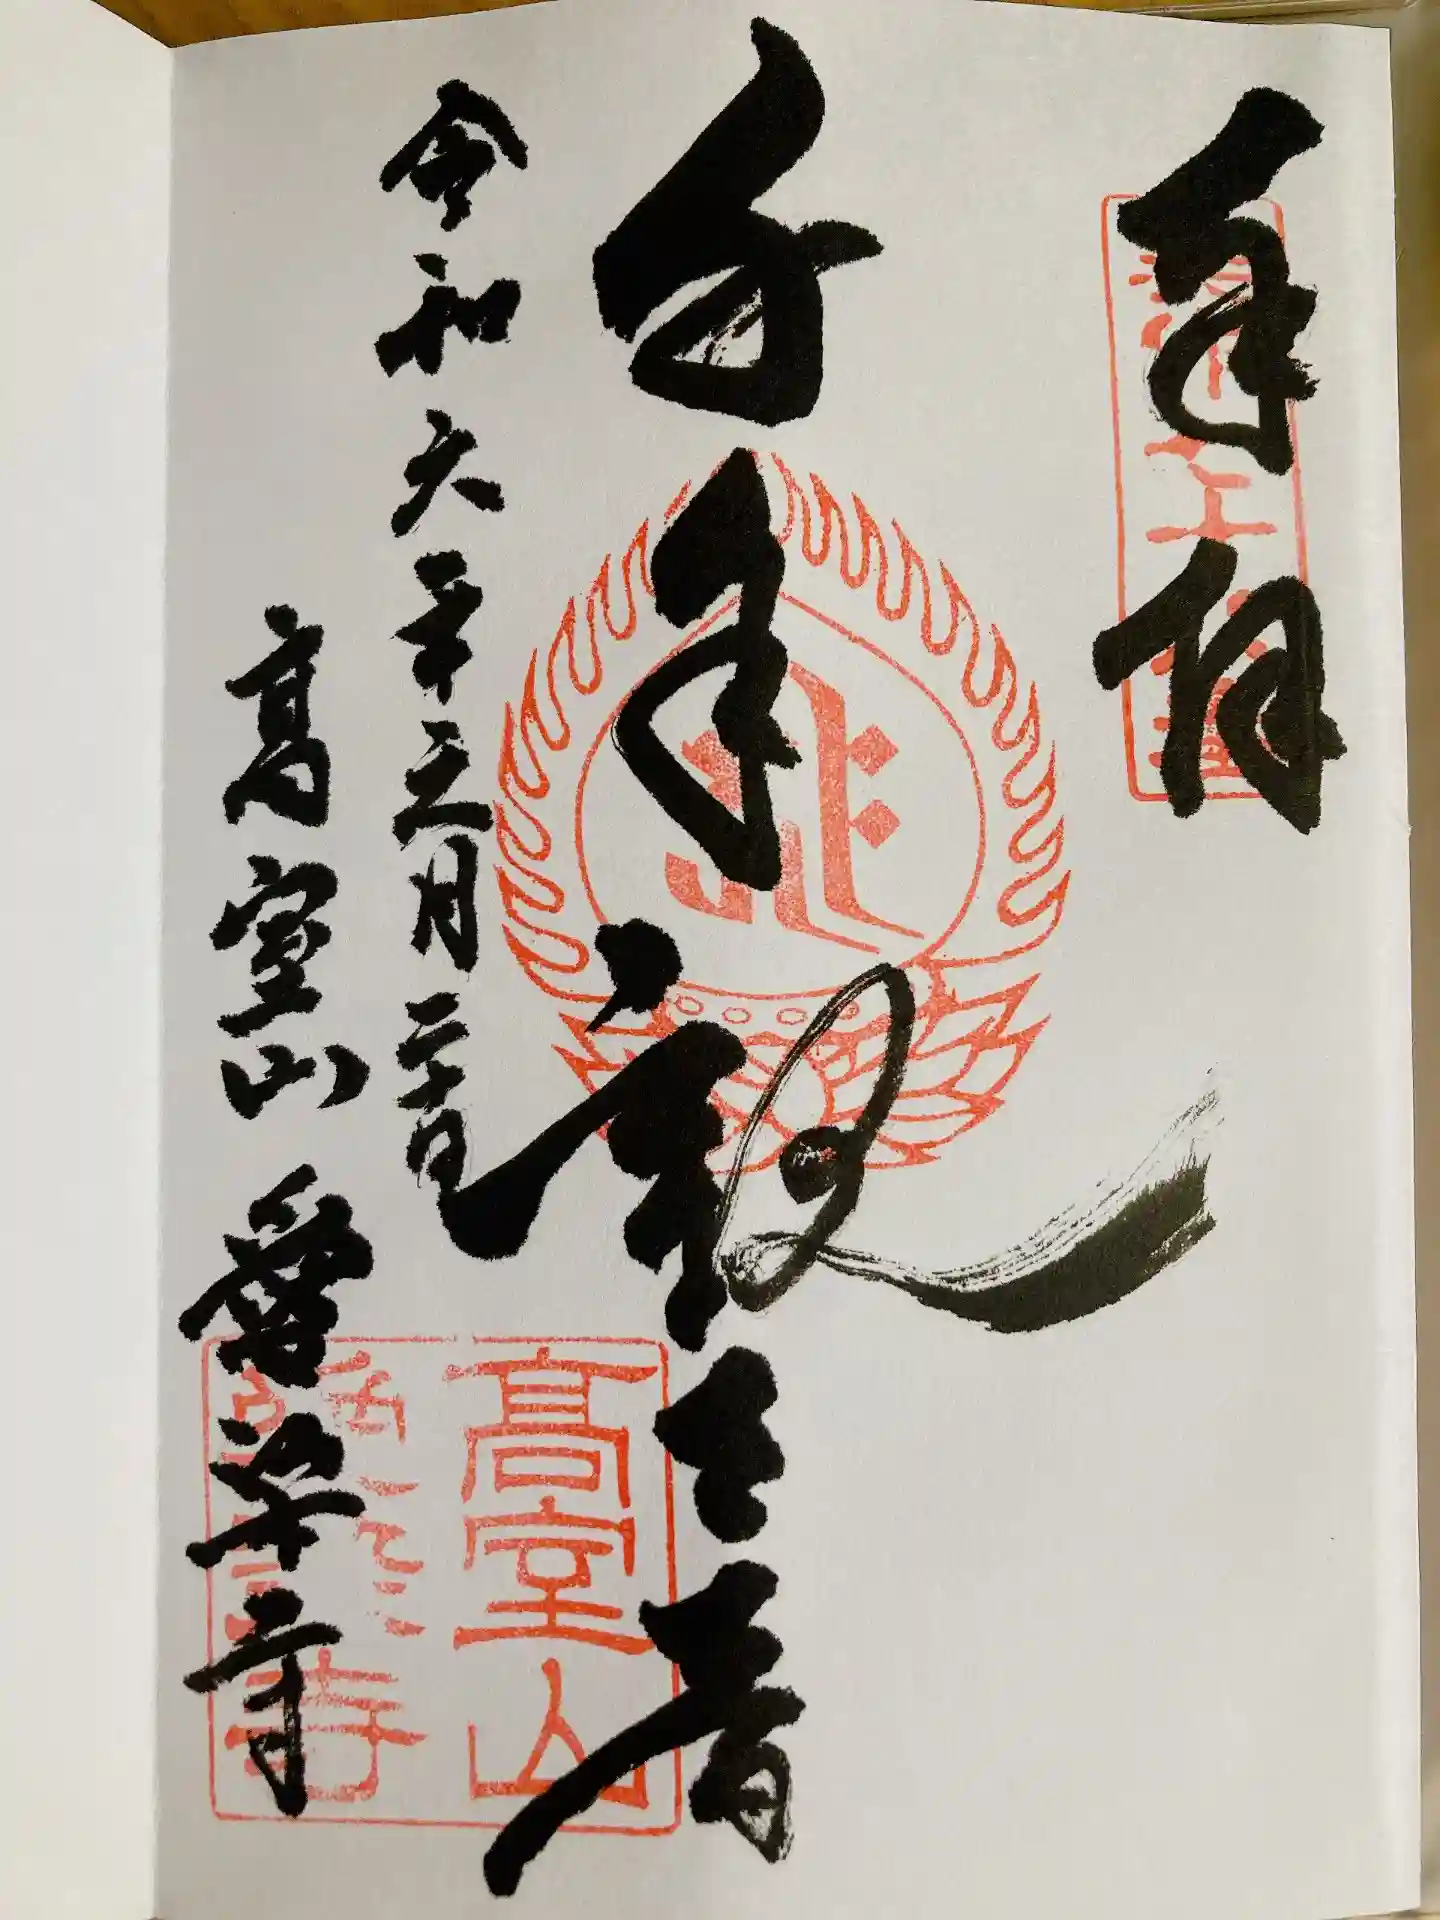 奉拝
千手観世音
令和六年三月二十日
高室山 寺
高室山
寺